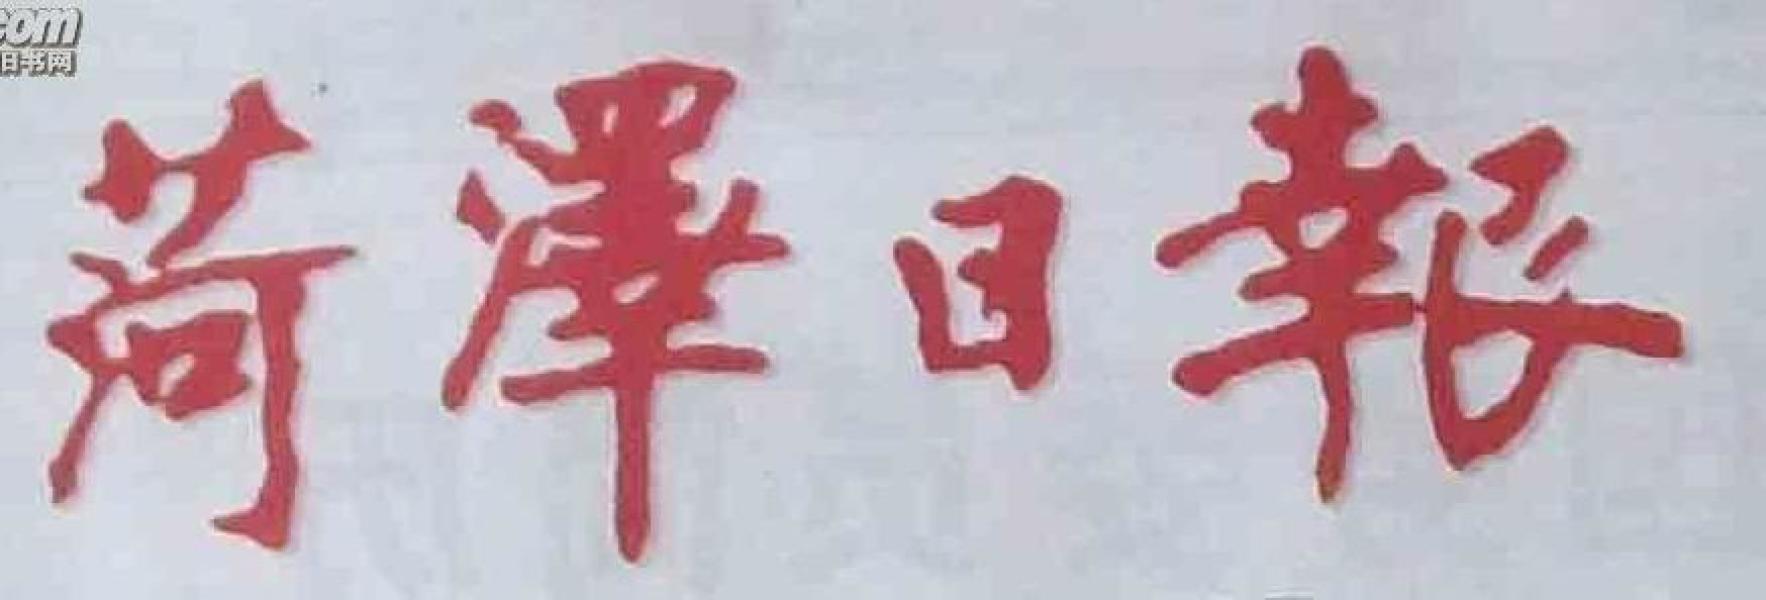 com
旧书网
菏澤日報